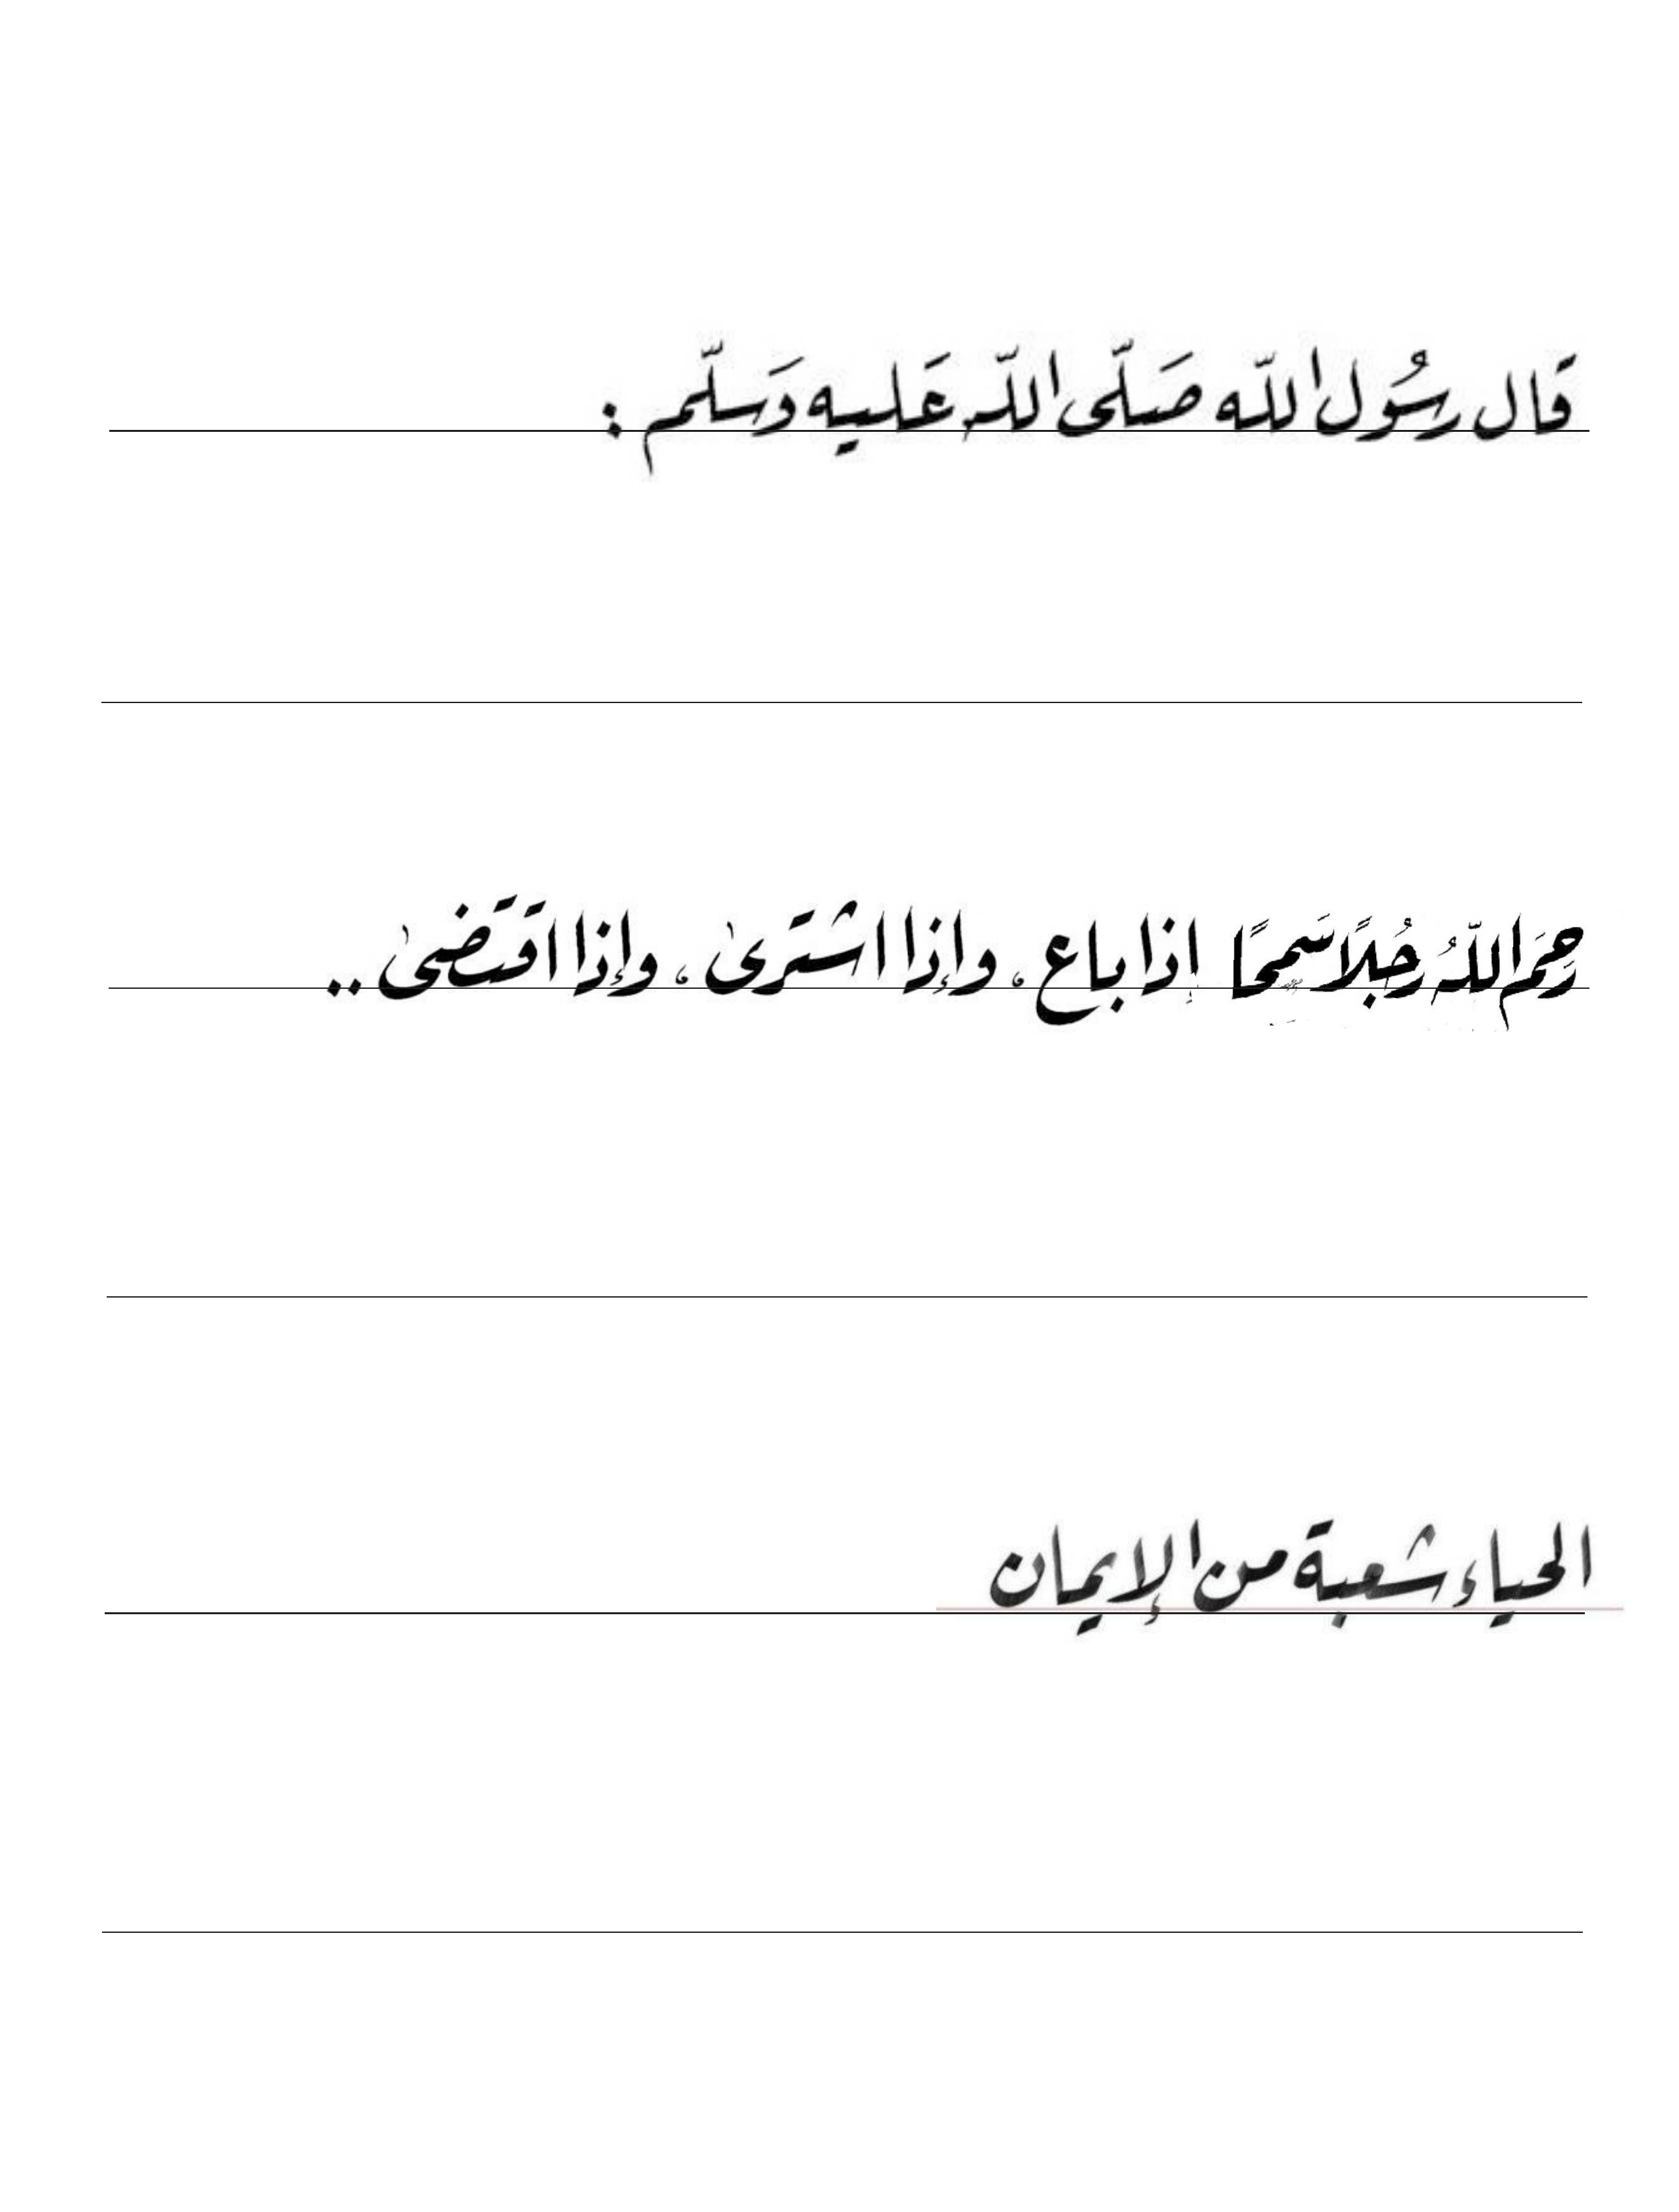 قال رسُول اللّه صَلّى اللّه عَليه وَسلّم :
رحِمَ اللّهُ رجُلاً سَمحًا إذا باع ، وإذا اشترى ، وإذا اقتَضى ..
الحياء شعبة من الإيمان